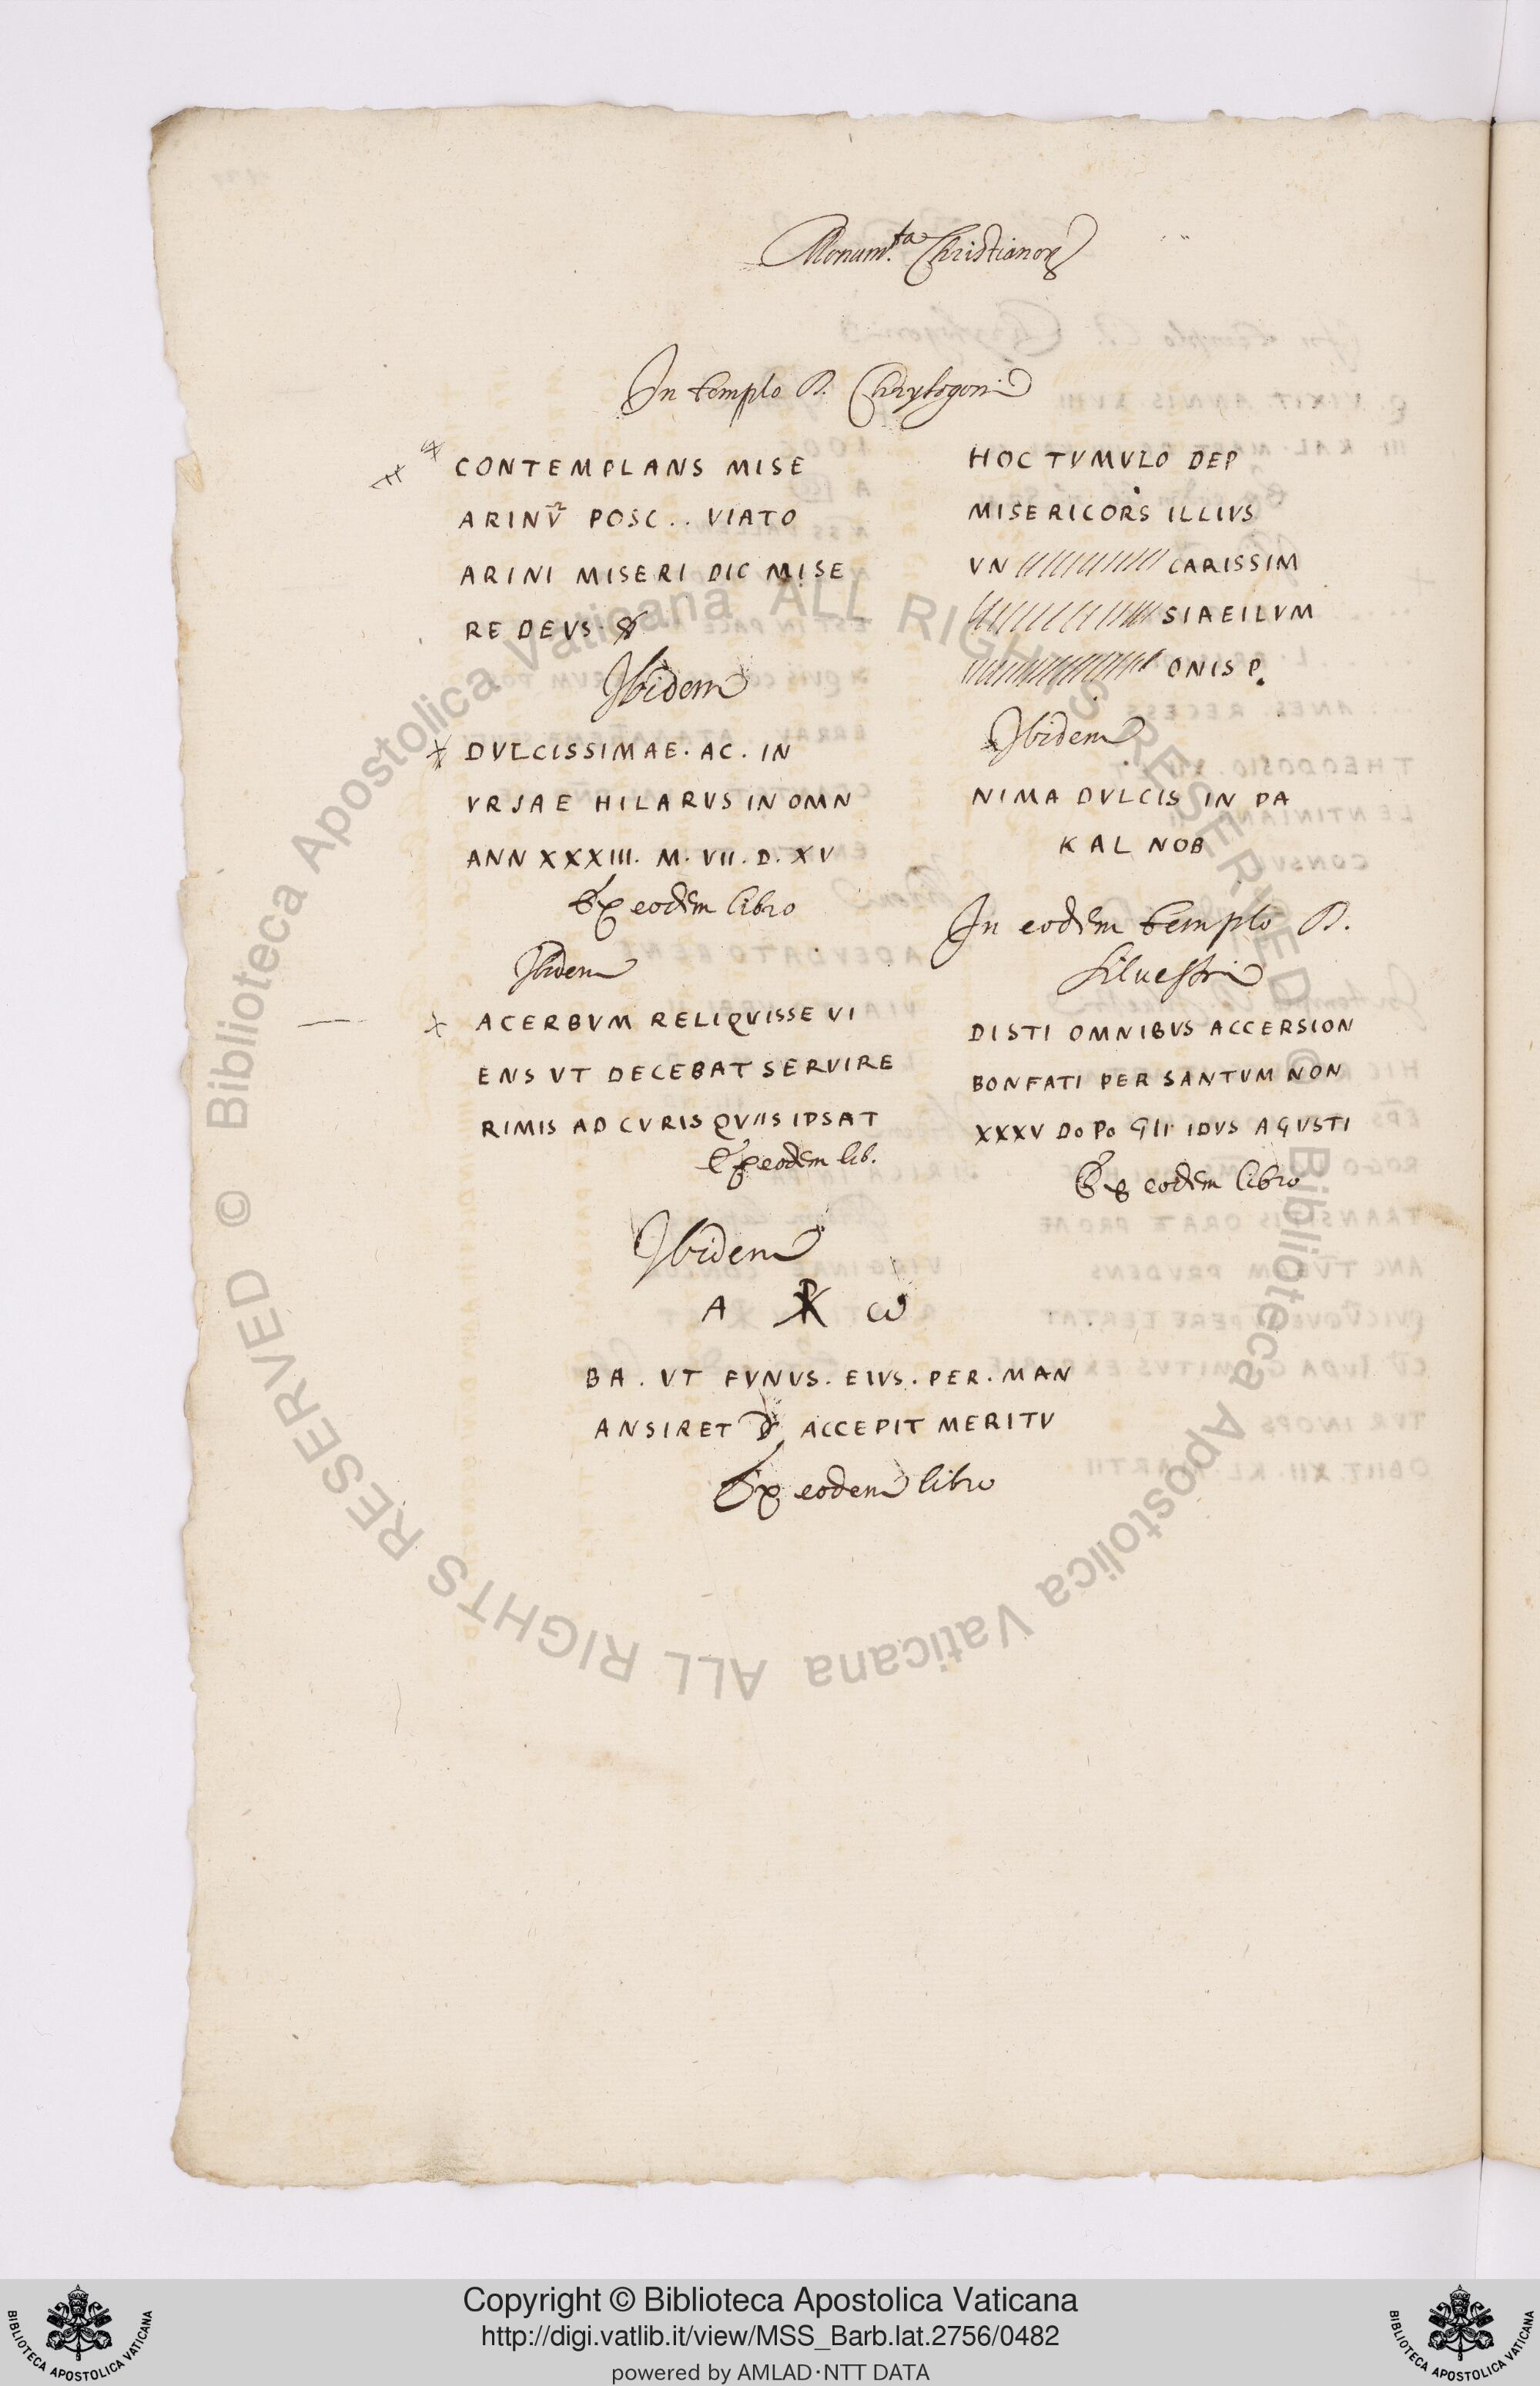 Monum.ta Christianorꝝ
In templo B. Chrysogoni
CONTEMPLANS MISE
ARINV̄ POSC . . VIATO
ARINI MISERI DIC MISE
RE DEVS.
Ibidem
DVLCISSIMAE. AC. IN
VRSAE HILARVS IN OMN
ANN XXXIII. M. VII. D. XV
Ex eodem libro
Ibidem
ACERBVM RELIQVISSE VI
ENS VT DECEBAT SERVIRE
RIMIS AD CVRIS QVIIS IPSAT
Ex eodem lib.
HOC TVMVLO DEP
MISERICORS ILLIVS
VN CARISSIM
SIAEILVM
ONIS P.
Ibidem
NIMA DVLCIS IN PA
KAL NOB
In eodem templo B.
Silvestri
DISTI OMNIBVS ACCERSION
BONFATI PER SANTVM NON
XXXV DoPo GII IDVS AGVSTI
Ex eodem libro
Ibidem
A ☧ ω
BA. VT FVNVS. EIVS. PER. MAN
ANSIRET D ACCEPIT MERITV
Ex eodem libro
Biblioteca Apostolica Vaticana ALL RIGHTS RESERVED ©
Biblioteca Apostolica Vaticana ALL RIGHTS RESERVED ©
Copyright © Biblioteca Apostolica Vaticana
http://digi.vatlib.it/view/MSS_Barb.lat.2756/0482
powered by AMLAD·NTT DATA
BIBLIOTECA APOSTOLICA VATICANA
BIBLIOTECA APOSTOLICA VATICANA